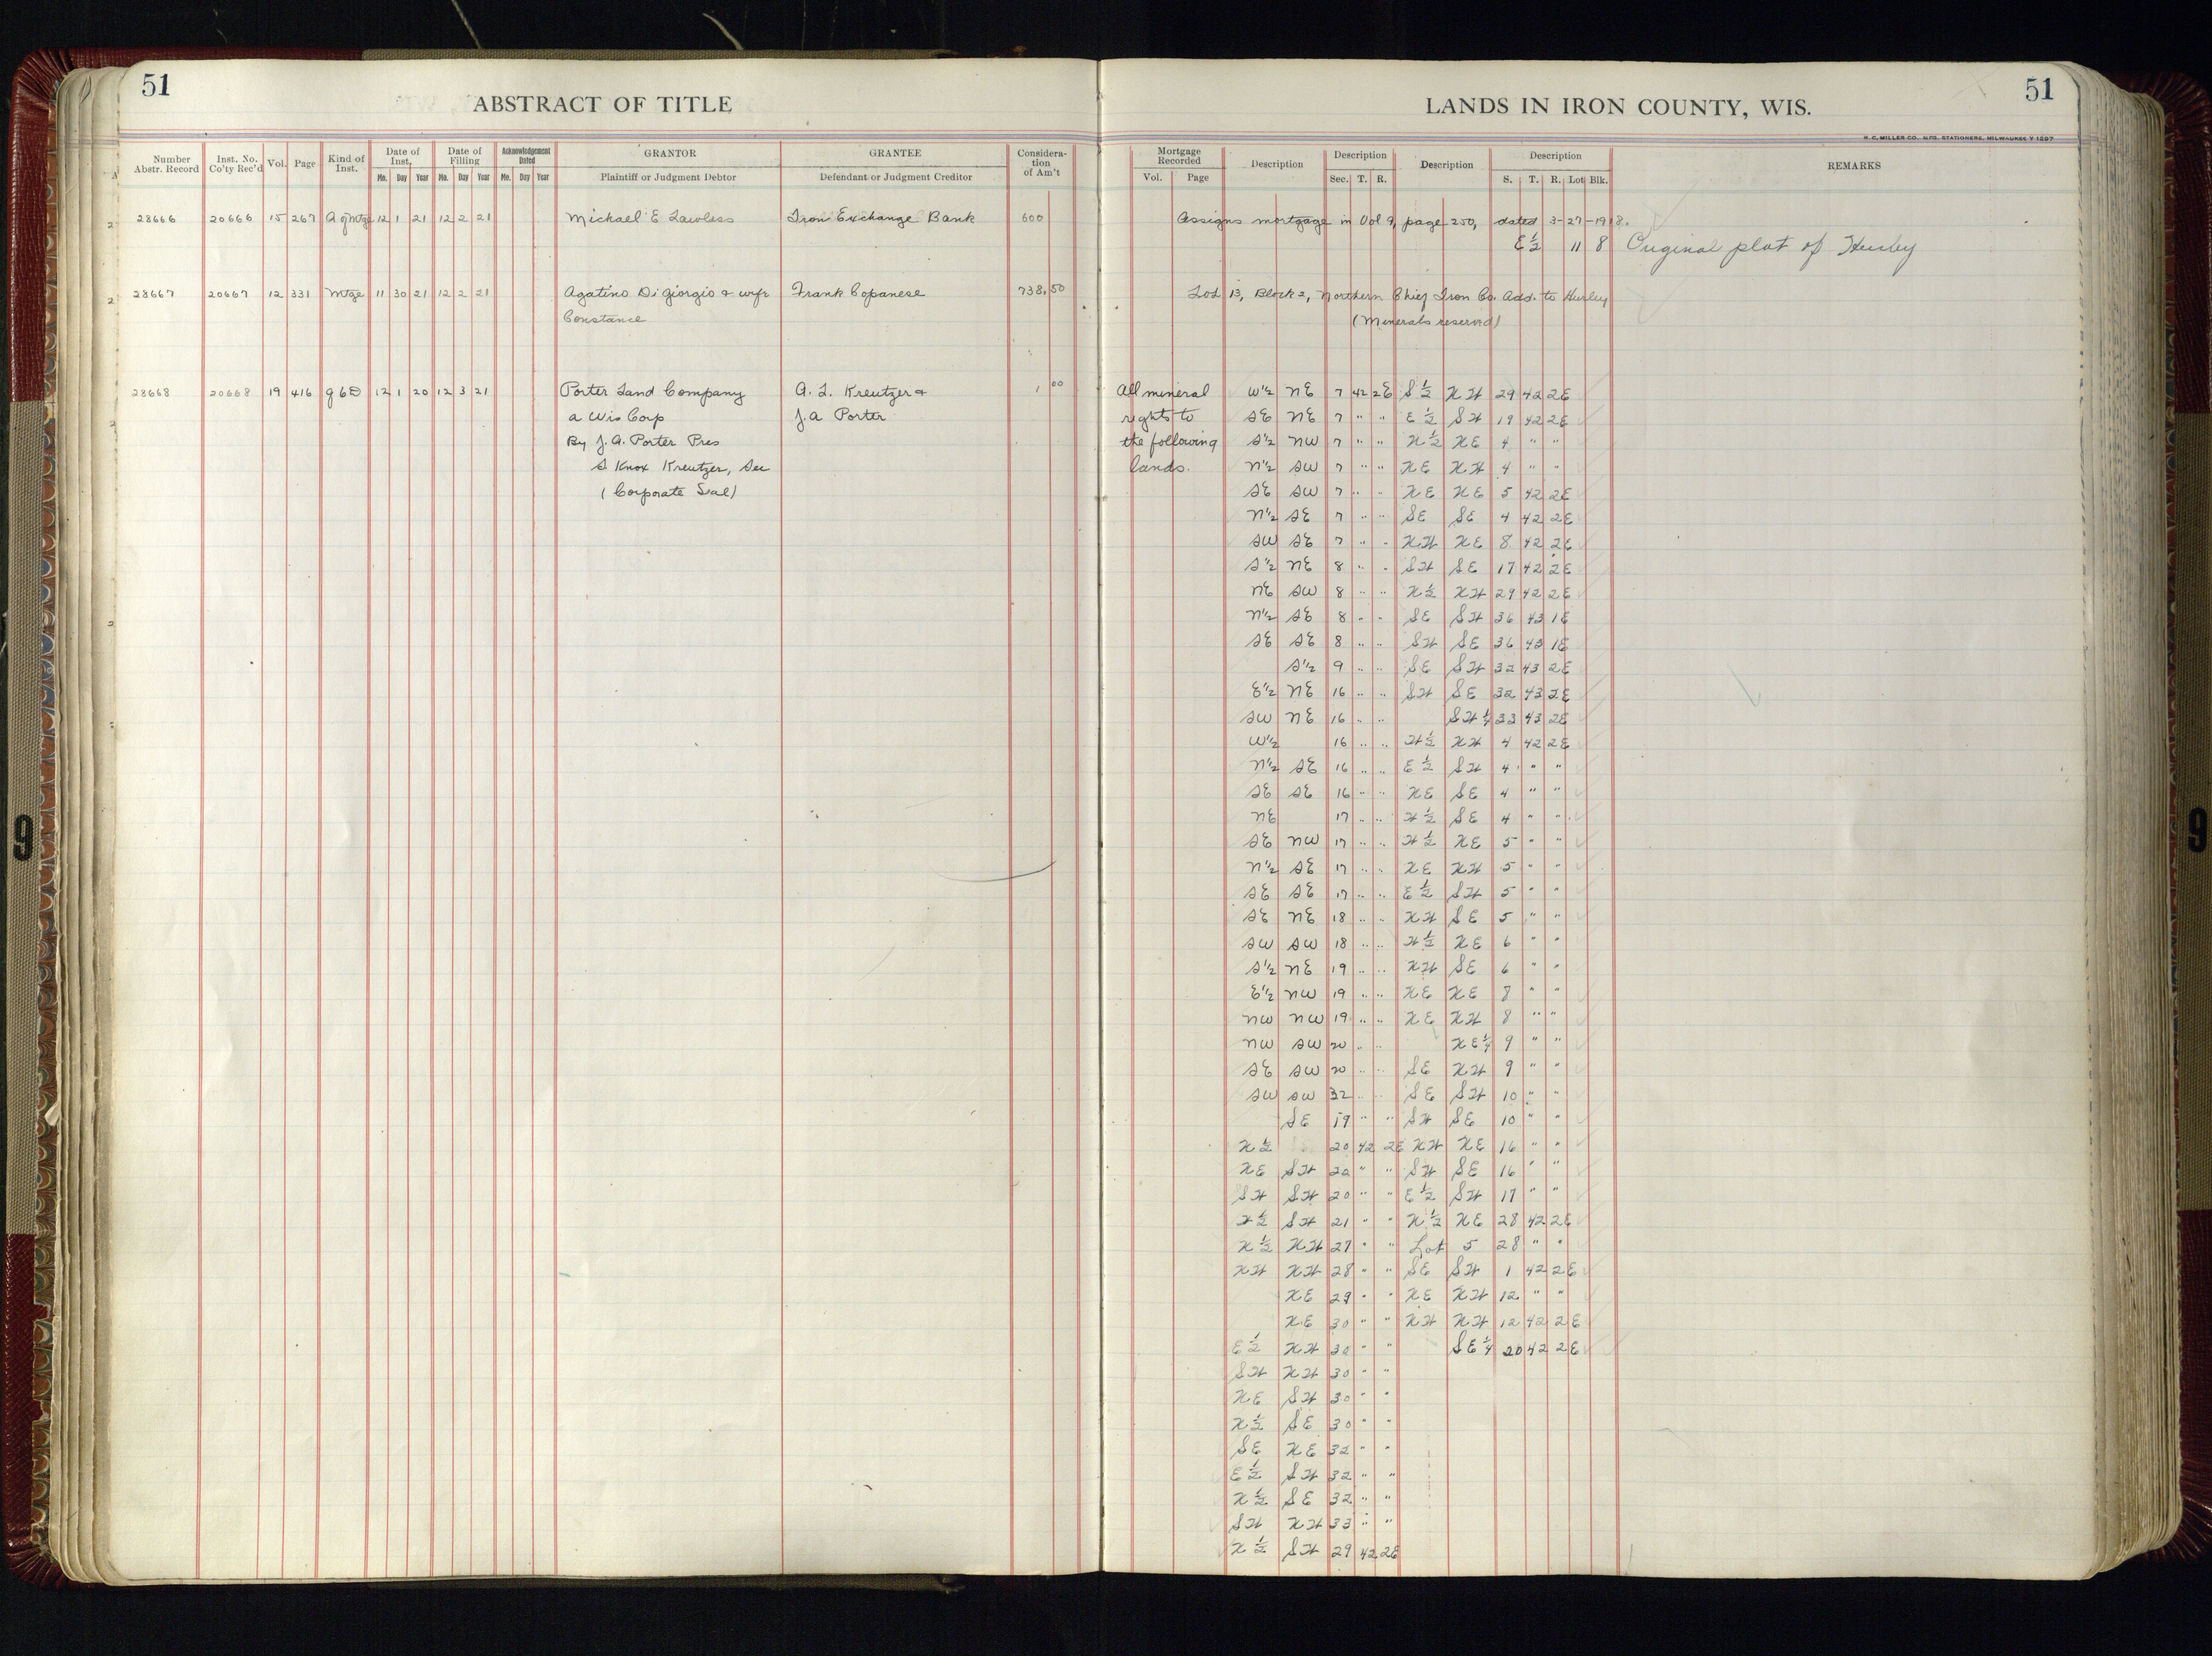 51
ABSTRACT OF TITLE
Number Abstr. Record Inst. No. Co'ty Rec'd Vol. Page Kind of Inst. Date of Inst. Mo. Day Year Date of Filling Mo. Day Year Acknowledgement Dated Mo. Day Year GRANTOR Plaintiff or Judgment Debtor GRANTEE Defendant or Judgment Creditor Consideration of Am't
28666 20666 15 267 A of Mtge 12 1 21 12 2 21 Michael E Lawless Iron Exchange Bank 600
28667 20667 12 331 Mtge 11 30 21 12 2 21 Agatino Di Giorgio & wife Frank Copanese 738.50
Constance
28668 20668 19 416 Q C D 12 1 20 12 3 21 Porter Land Company A. L. Kreutzer & 1 00
a Wis Corp J. A Porter
By J. A. Porter Pres
S Knox Kreutzer, Sec
(Corporate Seal)
LANDS IN IRON COUNTY, WIS.
51
H. C. MILLER CO. MFG. STATIONERS, MILWAUKEE
Mortgage Recorded Vol. Page Description Description Sec. T. R. Description Description S. T. R. Lot Blk. REMARKS
Assigns mortgage in Vol 9, page 250, dated 3-27-1918.
E 1/2 11 8 Original plat of Hurley
Lot 13, Block 2, Northern Chief Iron Co. Add. to Hurley
(Minerals reserved)
All mineral W 1/2 NE 7 42 2E S 1/2 NW 29 42 2E
rights to SE NE 7 " " E 1/2 SW 19 42 2E
the following S 1/2 NW 7 " " N 1/2 NE 4 " "
lands. N 1/2 SW 7 " " NE NW 4 " "
SE SW 7 " " NE NE 5 42 2E
N 1/2 SE 7 " " SE SE 4 42 2E
SW SE 7 " " NW NE 8 42 2E
S 1/2 NE 8 " " SW SE 17 42 2E
NE SW 8 " " N 1/2 NW 29 42 2E
N 1/2 SE 8 " " SE SW 36 43 1E
SE SE 8 " " SW SE 36 43 1E
S 1/2 9 " " SE SW 32 43 2E
E 1/2 NE 16 " " SW SE 32 43 2E
SW NE 16 " " SW 1/4 33 43 2E
W 1/2 16 " " W 1/2 NW 4 42 2E
N 1/2 SE 16 " " E 1/2 SW 4 " "
SE SE 16 " " NE SE 4 " "
NE 17 " " W 1/2 SE 4 " "
SE NW 17 " " W 1/2 NE 5 " "
N 1/2 SE 17 " " NE NW 5 " "
SE SE 17 " " E 1/2 SW 5 " "
SE NE 18 " " NW SE 5 " "
SW SW 18 " " W 1/2 NE 6 " "
S 1/2 NE 19 " " NW SE 6 " "
E 1/2 NW 19 " " NE NE 8 " "
NW NW 19 " " NE NW 8 " "
NW SW 20 " " NE 1/4 9 " "
SE SW 20 " " SE NW 9 " "
SW SW 32 " " SE SW 10 " "
SE 19 " " SW SE 10 " "
N 1/2 20 42 2E NW NE 16 " "
NE SW 20 " " SW SE 16 " "
SW SW 20 " " E 1/2 SW 17 " "
W 1/2 SW 21 " " N 1/2 NE 28 42 2E
N 1/2 NW 27 " " Lot 5 28 " "
NW NW 28 " " SE SW 1 42 2E
NE 29 " " NE NW 12 " "
NE 30 " " NW NW 12 42 2E
E 1/2 NW 30 " " SE 1/4 20 42 2E
SW NW 30 " "
NE SW 30 " "
N 1/2 SE 30 " "
SE NE 32 " "
E 1/2 SW 32 " "
N 1/2 SE 32 " "
SW NW 33 " "
N 1/2 SW 29 42 2E
9
9